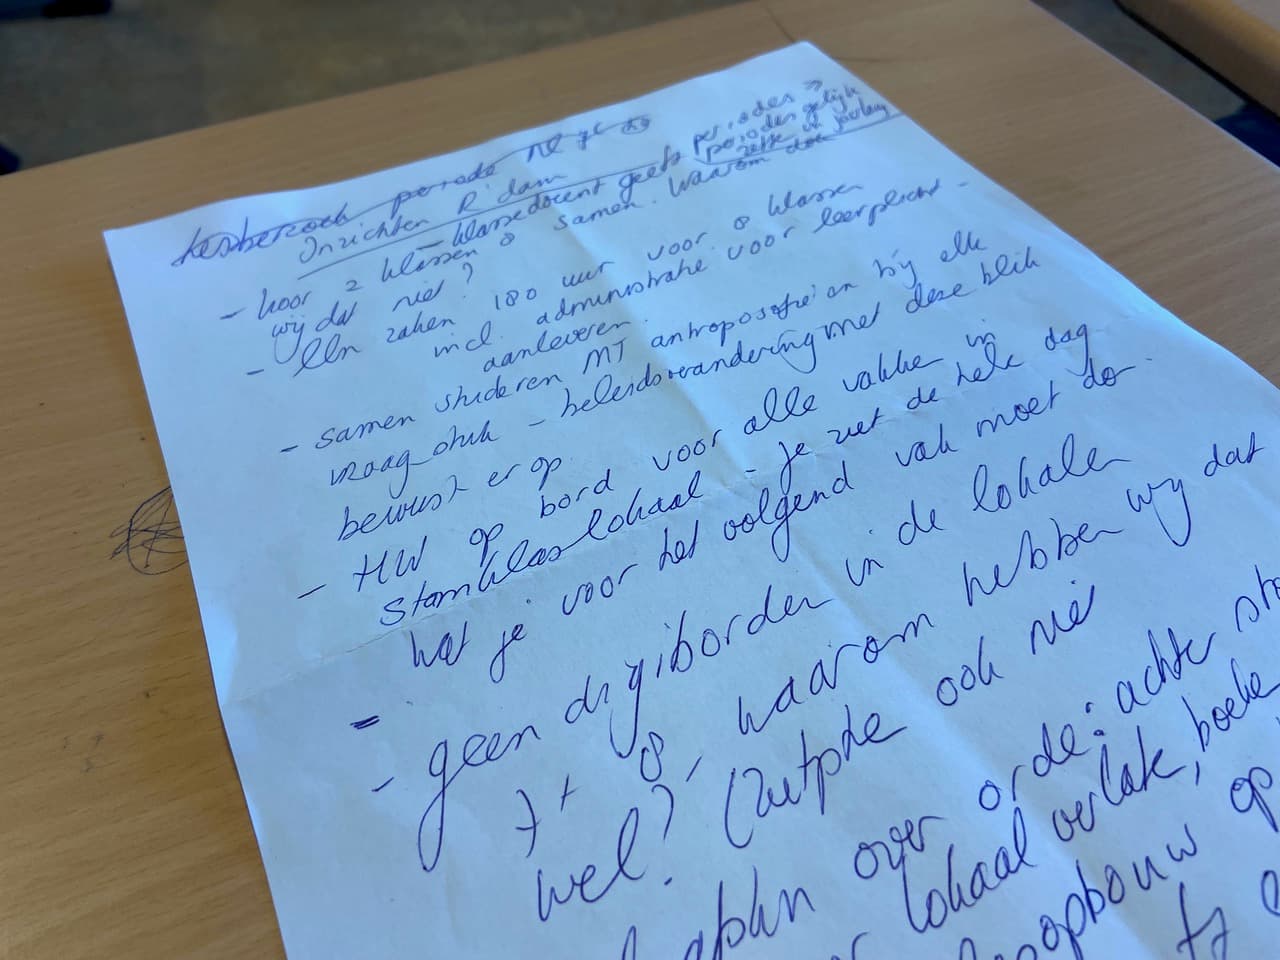 Lesbezoek periode
Inzichten R'dam
periodes =>
periodes gelijk
zetten in jaarlaag
- voor 2 klassen - klassedocent geeft
8 samen. Waarom doen
wij dat niet?
- lln zaken 180 uur voor 8 klassen
incl. administratie voor leerplicht -
aanleveren.
- samen studeren MT antroposofie an bij elk
vraagstuk - beleidsverandering met deze blik
bewust er op
- HW op bord voor alle vakken in
stamklaslokaal - je ziet de hele dag
wat je voor het volgend vak moet doen
- geen digiborden in de lokalen
7 + 8, waarom hebben wij dat
wel? (Zutphen ook niet
over orde: achter
lokaal verlaten, boeken
opbouw op